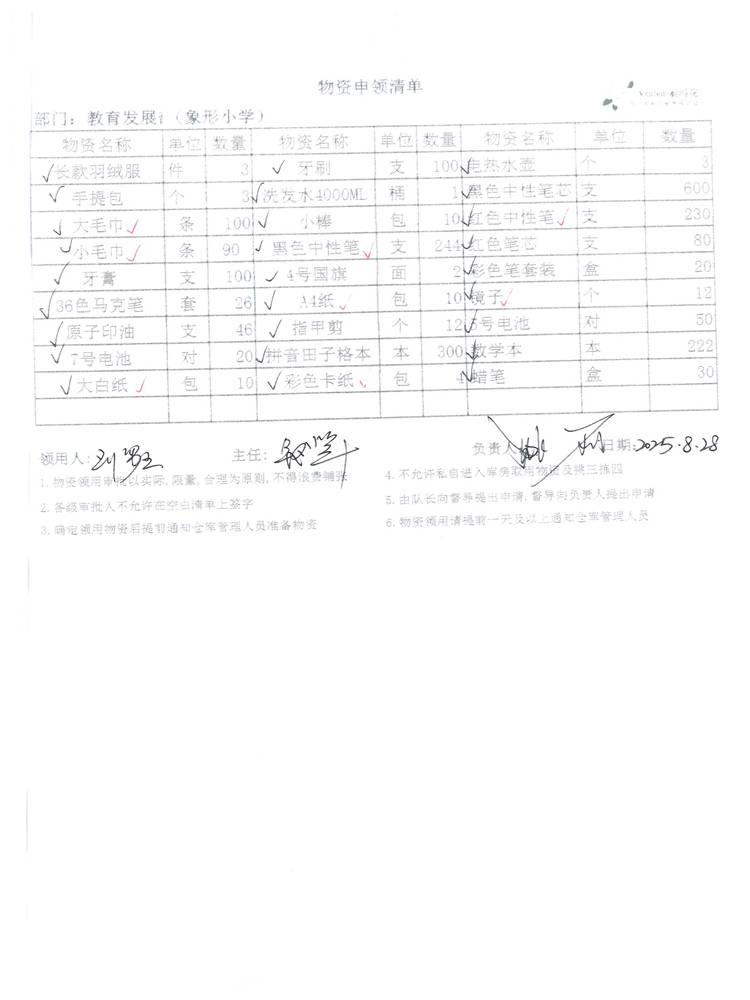 物资申领清单
部门：教育发展（象形小学）
物资名称 单位 数量 物资名称 单位 数量 物资名称 单位 数量
✓长款羽绒服 件 3 ✓牙刷 支 100 ✓电热水壶 个 3
✓手提包 个 3 ✓洗发水4000ML 桶 1 ✓黑色中性笔芯 支 600
✓大毛巾✓ 条 100 ✓小棒 包 10 ✓红色中性笔✓ 支 230
✓小毛巾✓ 条 90 ✓黑色中性笔✓ 支 244 ✓红色笔芯 支 80
✓牙膏 支 100 ✓4号国旗 面 2 ✓彩色笔套装 盒 20
✓36色马克笔 套 26 ✓A4纸✓ 包 10 ✓镜子✓ 个 12
✓原子印油 支 46 ✓指甲剪 个 12 ✓5号电池 对 50
✓7号电池 对 20 ✓拼音田子格本 本 300 ✓数学本 本 222
✓大白纸✓ 包 10 ✓彩色卡纸✓ 包 4 ✓蜡笔 盒 30
领用人: 主任: 负责人 日期: 2025.8.28
1. 物资领用审批以实际, 限量, 合理为原则, 不得浪费铺张
2. 各级审批人不允许在空白清单上签字
3. 确定领用物资后提前通知仓库管理人员准备物资
4. 不允许私自进入库房取用物资及挑三拣四
5. 由队长向督导提出申请, 督导向负责人提出申请
6. 物资领用请提前一天及以上通知仓库管理人员